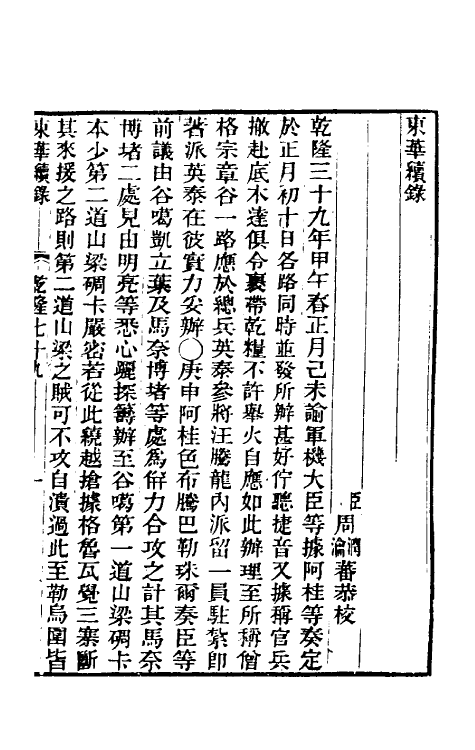 東華續錄
臣周潤蕃恭校
瀹
乾隆三十九年甲午春正月己未諭軍機大臣等據阿桂等奏定
於正月初十日各路同時並發所辦甚好佇聽捷音又據稱官兵
撤赴底木達俱令裹帶乾糧不許舉火自應如此辦理至所稱僧
格宗章谷一路應於總兵英泰參將汪騰龍內派留一員駐紮即
著派英泰在彼實力妥辦○庚申阿桂色布騰巴勒珠爾奏臣等
前議由谷噶凱立葉及馬奈博堵等處為併力合攻之計其馬奈
博堵二處見由明亮等悉心驪探籌辦至谷噶第一道山梁碉卡
本少第二道山梁碉卡嚴密若從此繞越搶據格魯瓦覺三寨斷
其來援之路則第二道山梁之賊可不攻自潰過此至勒烏圍皆
東華續錄 乾隆七十九 一